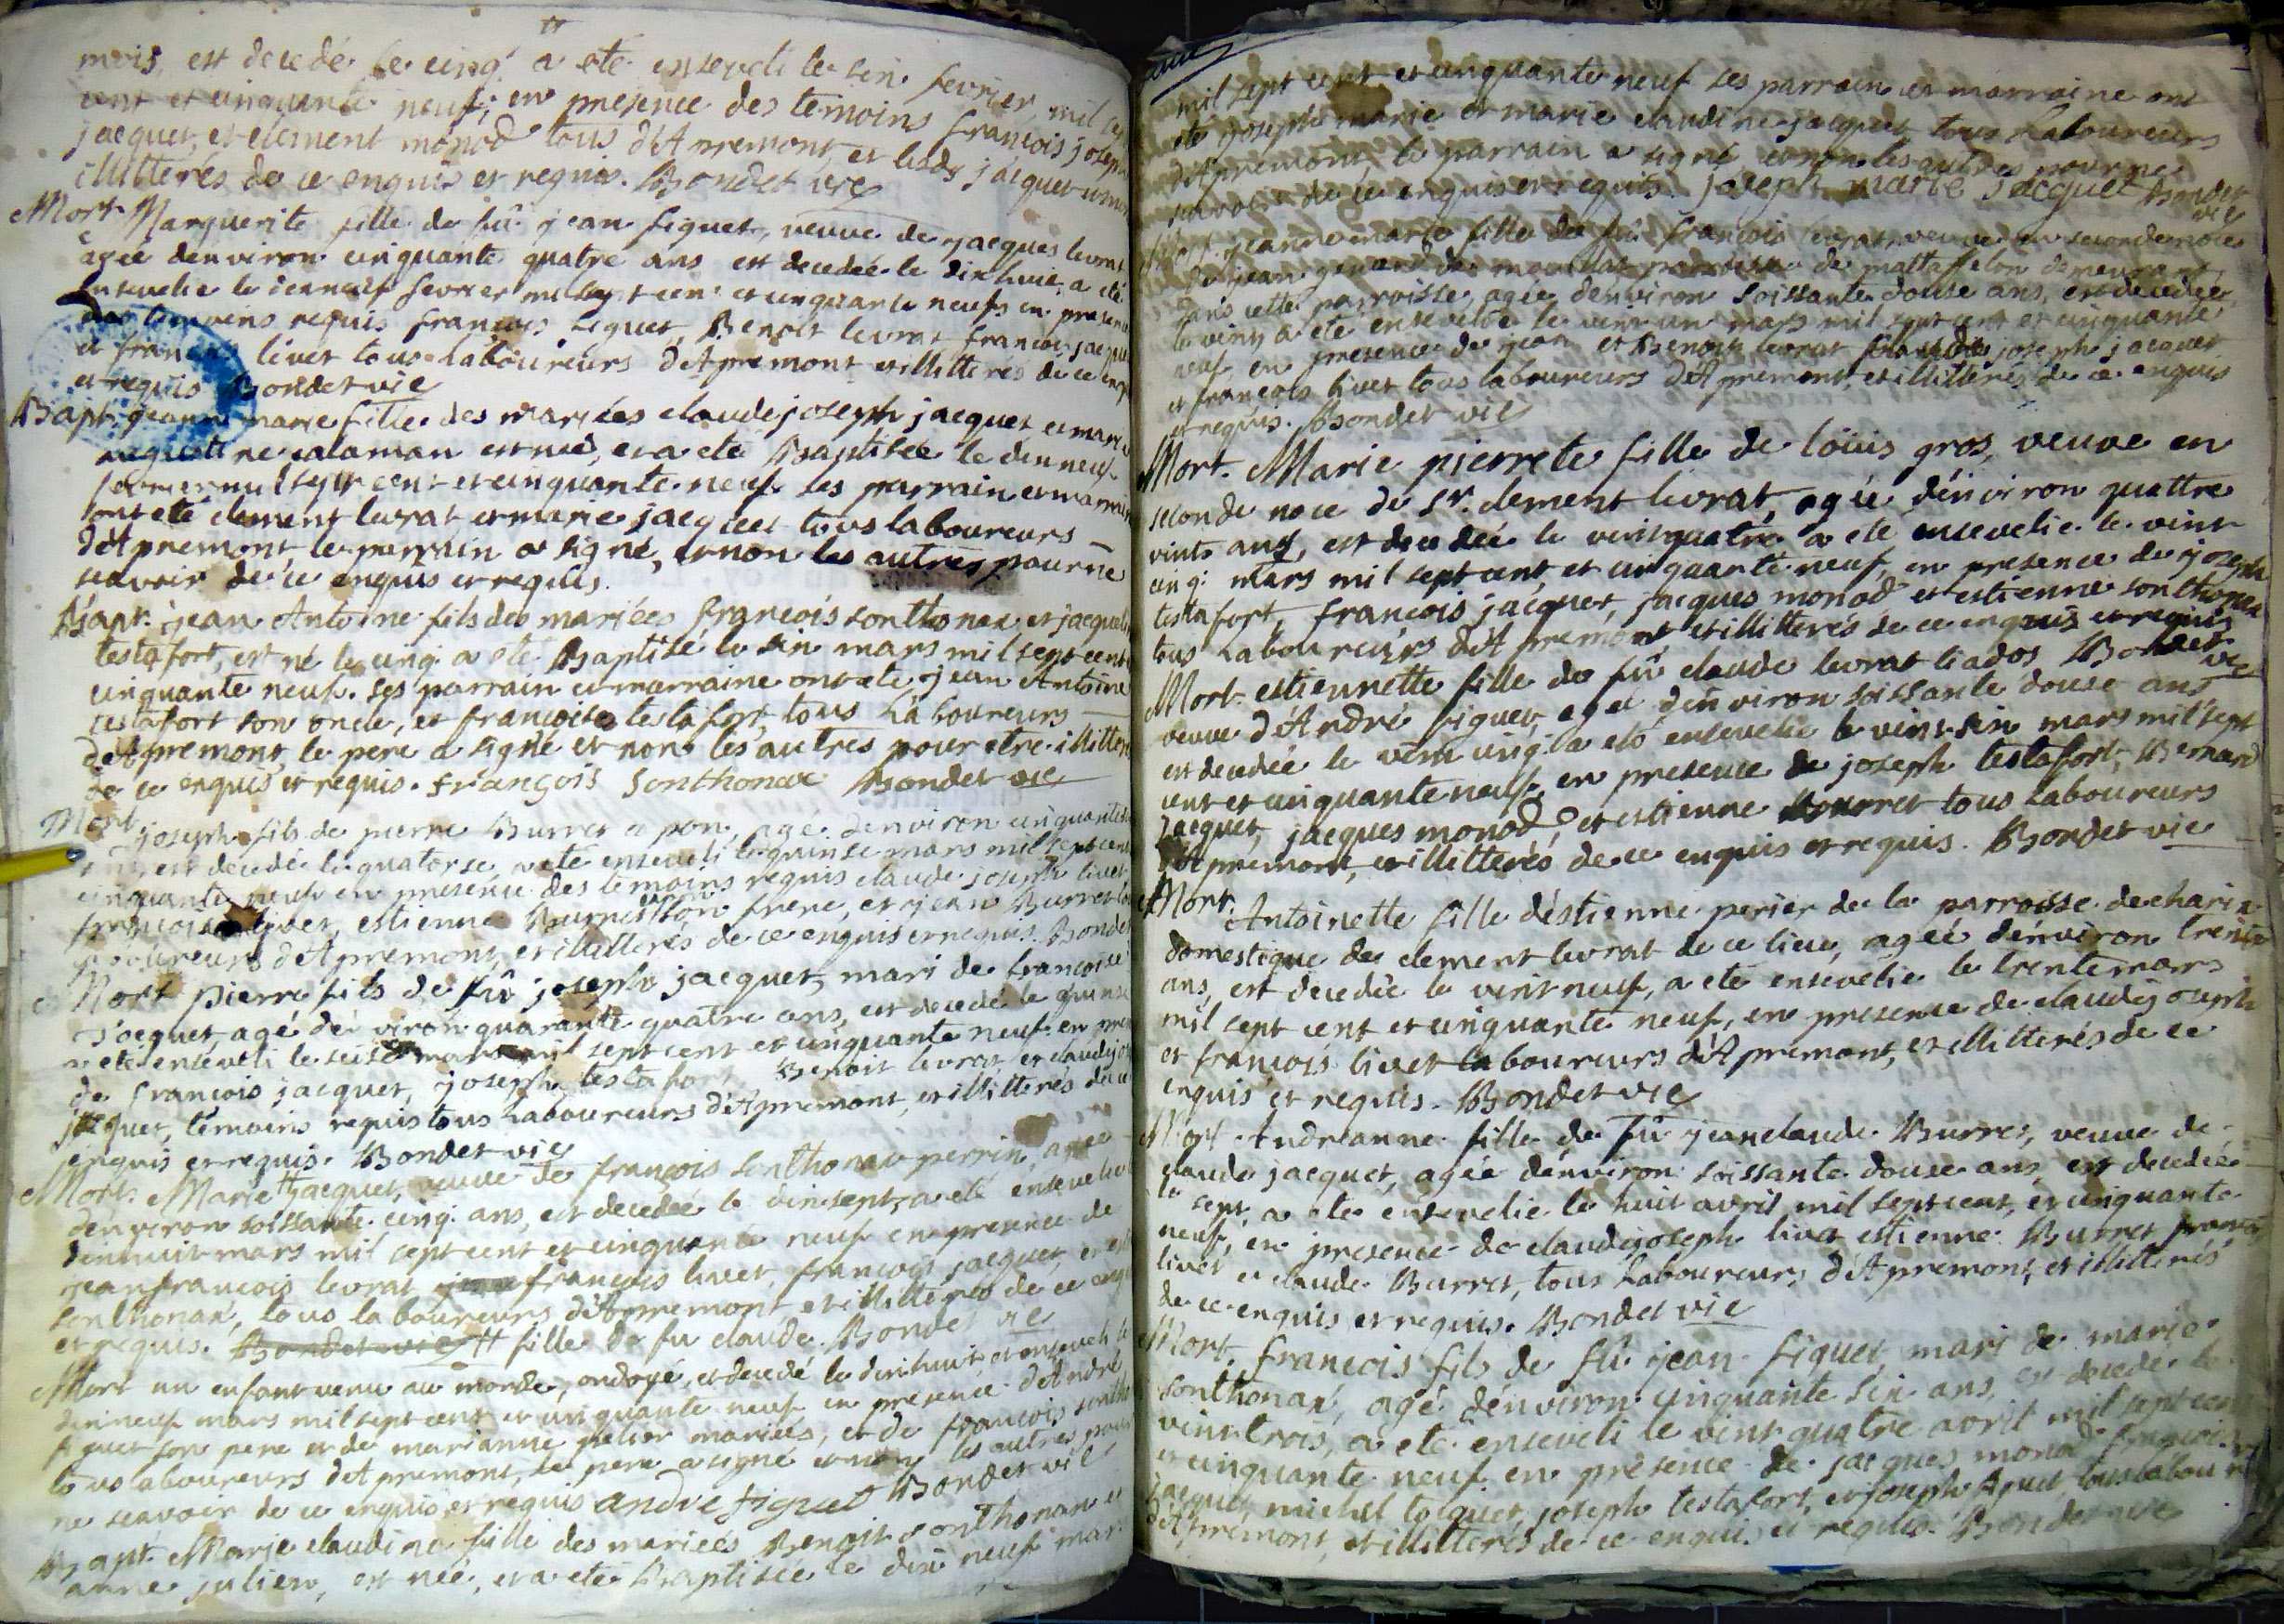 mois, est decedé le cinq. a eté enseveli le sin fevrier mil sep
cent et cinquante neuf; en presence des temoins françois joseph
jacquet, et clement monod tous d'Apremont, et lesds jacquet
illitterés de ce enquis et requis. Bondet vic
Mort Marguerite fille de fû jean figuet, veuve de jacques levrat
agée denviron cinquante quatre ans est decedée le dix huit, a eté
ensevelie le dixneuf fevrier mil sept cent et cinquante neufs en presence
des temoins requis françois figuet, Benoit levrat françois jacquet
et françois livet tous laboureurs d'Apremont et illitterés de ce enquis
et requis Bondet vic
Bapt. jeanne marie fille des mariées claudejoseph jacquet et marie
augustine calaman est née, et a eté Baptisée le dixneuf
fevrier mil sept cent et cinquante neuf ses parrain et marraine
ont eté clement levrat et marie jacquet tous laboureurs
d'Apremont, le parrain a signé, et non les autres pour ne
scavoir de ce enquis et requis.
Bapt. jean Antoine fils des mariées françois sonthonax et jacqueline
testafort, est né le cinq. a eté Baptisé le sin mars mil sept cent
cinquante neuf. ses parrain et marraine ont eté jean Antoine
testafort son oncle, et françoise testafort, tous Laboureurs
d'Apremont, le pere a signé et non les autres pour etre illitteré
de ce enquis et requis. françois Sonthonax Bondet vic
Mort joseph fils de pierre Burret a pon, agé denviron cinquante
ans, est decedé le quatorse, a eté enseveli le quinse mars mil sept cent
cinquante neuf en presence des temoins requis claude joseph livet
françois livet, estienne Burret son frere, et jean Burret
laboureurs d'Apremont, et illitterés de ce enquis et requis. Bondet
Mort pierre fils de fû joseph jacquet, mari de françoise
Jacquet, agé denviron quarante quatre ans, est decedé le quinse
a eté enseveli le seise mars mil sept cent et cinquante neuf. en pre
de françois jacquet, joseph testafort Benoit levrat, et claudejos
jacquet, temoins requis tous Laboureurs d'Apremont, et illitterés de ce
enquis et requis. Bondet vic
Mort. Marie # jacquet, veuve de françois sonthonax perrin, agée
denviron soissante cinq. ans, est decedée le dix sept, a eté ensevelie
dixhuit mars mil sept cent et cinquante neuf en presence de
jeanfrançois levrat françois livet, françois jacquet, et
Sonthonax, tous laboureurs d'Apremont, et illitterés de ce enqu
et requis. Bondet vic # fille de fu claude. Bondet vic
Mort un enfant venu au monde, ondoyé, et decedé le dix huit, et enseveli le
dixneuf mars mil sept cent et cinquante neuf en presence d'André
figuet son pere et de marianne mariées, et de françois sontho
tous laboureurs d'Apremont, le pere a signé et non les autres pour
ne scavoir de ce enquis et requis andré figuet Bondet vic
Bapt. Marie claudine fille des mariées Benoit sonthonax et
anne julien, est née, et a eté Baptisée le dix neuf mar
mil sept cent et cinquante neuf ses parrain et marraine ont
eté joseph marie et marie claudine jacquet tous Laboureurs
d'Apremont, le parrain a signé et non les autres pour ne
scavoir de ce enquis et requis. joseph marie Jacquet Bondet
vic
Mort. jeanne marie fille de fû françois levrat veuve en seconde noces
de jean de parroisse de mattafelon demeurant
dans cette parroisse, agée denviron soissante douse ans, est decedée
le vint a eté ensevelie le vint un mars mil sept cent et cinquante
neuf, en presence de jean et Benoit levrat joseph jacquet
et françois livet tous laboureurs d'Apremont, et illitterés de ce enquis
et requis. Bondet vic
Mort. Marie pierrete fille de loüis gros, veuve en
seconde noce de Sr. clement levrat, agée denviron quattre
vints ans, est decedée le vint quatre a eté ensevelie le vint
cinq. mars mil sept cent, et cinquante neuf, en presence de joseph
testafort, françois jacquet, jacques monod et estienne sonthonax
tous Laboureurs d'Apremont, et illitterés de ce enquis et requis
Bondet vic
Mort estiennette fille de fû claude levrat liados
veuve d'André figuet, agée denviron soissante douse ans
est decedée le vint cinq. a eté ensevelie le vint sin mars mil sept
cent et cinquante neuf, en presence de joseph testafort, Bernard
Jacquet, jacques monod, et estienne Bourret tous Laboureurs
d'Apremont, et illitterés de ce enquis et requis. Bondet vic
Mort. Antoinette fille d'éstienne perier de la parroisse de charix
domestique de clement levrat de ce lieu, agée denviron trente
ans, est decedée le vint neuf, a eté ensevelie le trente mars
mil sept cent et cinquante neuf, en presence de claudejoseph
et françois livet laboureurs d'Apremont, et illitterés de ce
enquis et requis. Bondet vic
Mort. Andréanne fille de fû jeanclaude Burret, veuve de
claude jacquet, agée denviron soissante douse ans, est decedée
le sept, a eté ensevelie le huit avril mil sept cent, et cinquante
neuf, en presence de claudejoseph livet estienne Burret françois
livet et claude Burret, tous Laboureurs d'Apremont, et illitterés
de ce enquis et requis. Bondet vic
Mort. françois fils de fû jean figuet, mari de marie
sonthonax, agé denviron cinquante sin ans, est decedé le
vint trois, a eté enseveli le vint quatre avril mil sept cent
et cinquante neuf en présence de jacques monod françois
jacquet, michel jacquet, joseph testafort, et joseph figuet, tous labour
d'Apremont, et illitterés de ce enquis et requis. Bondet vic